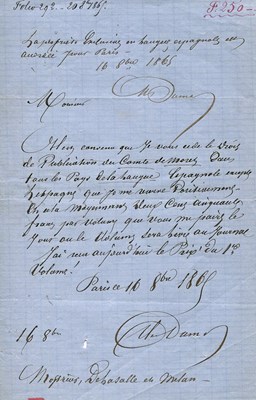 Folio 292 – 20 8bre 1865
F 250 =
La propriété Littéraire en langue espagnole est
cédée pour
Paris
16 8bre 1865
Monsieur
Il est convenu que Je vous cède le Droit
de Publication du Comte de Moret Dans
tous les Pays de la Langue Espagnole excepté
l'Espagne que Je me
moyennant Deux Cent Cinquante
francs par volume que vous me paierez le
Jour où le Volume sera livré au Journal
J'ai reçu aujourd'hui le Prix du 1er
Volume.
Paris ce 16 8bre 1865
16 8bre
Messieurs Delasalle et Mélan